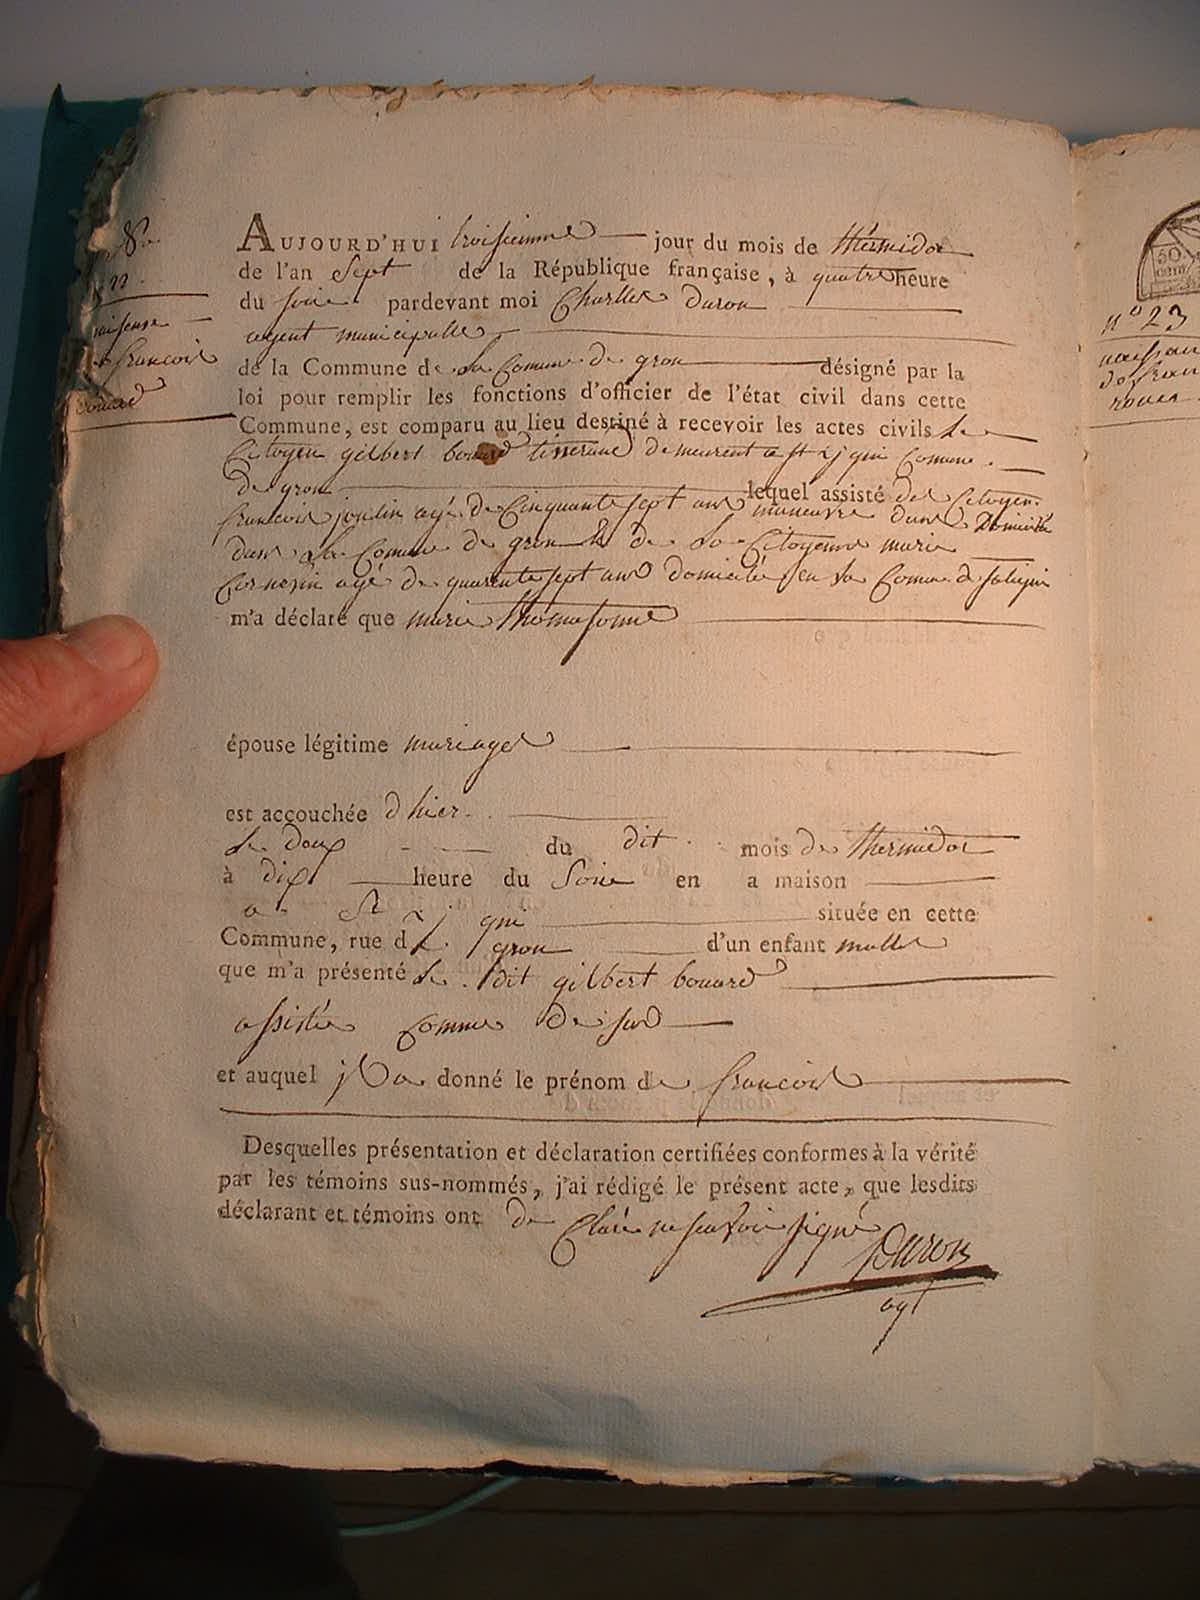 No
22.
naissance
francois
bouard
AUJOURD'HUI troisieme jour du mois de thermidor
de l'an sept de la République française, à quatre heure
du soir pardevant moi Charlles Duron
agent municipalle
de la Commune de la Commune de gron désigné par la
loi pour remplir les fonctions d'officier de l'état civil dans cette
Commune, est comparu au lieu destiné à recevoir les actes civils le
Citoyen gilbert bouard demeurent a st Comune
de gron lequel assisté des Citoyen
francois joulin agé de Cinquante sept ans maneuvre dans Domicilié
dans La Commune de gron & de La Citoyenne marie
agé de quarente sept ans domicilée en la Comune de
m'a déclaré que marie thomasonne
épouse légitime mariages
est accouchée d hier.
Le deux du dit mois de thermidor
à dix heure du Soire en a maison
a St située en cette
Commune, rue d gron d'un enfant malle
que m'a présenté Le dit gilbert bouard
assistée comme de sus
et auquel donné le prénom de francois
Desquelles présentation et déclaration certifiées conformes à la vérité
par les témoins sus-nommés, j'ai rédigé le présent acte, que lesdits
déclarant et témoins ont de Claré ne scavoir signé
Duron
agt
50.
cent.
n° 23
naissan
de fran